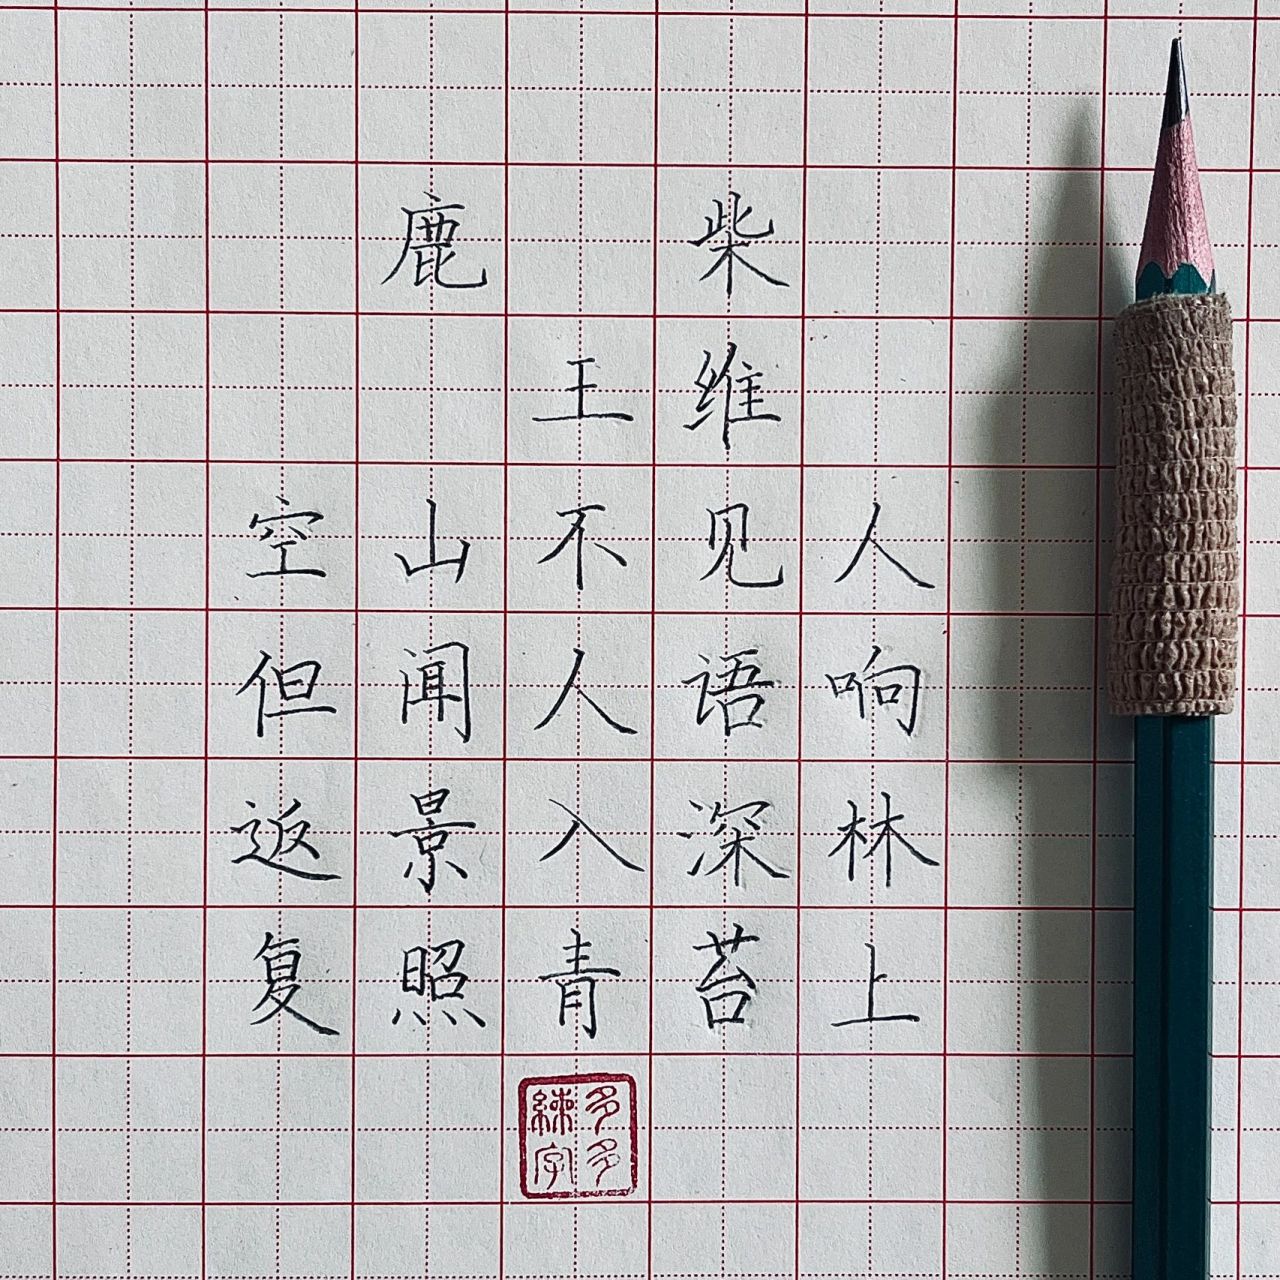 鹿柴
王维
空山不见人
但闻人语响
返景入深林
复照青苔上
多多
練字